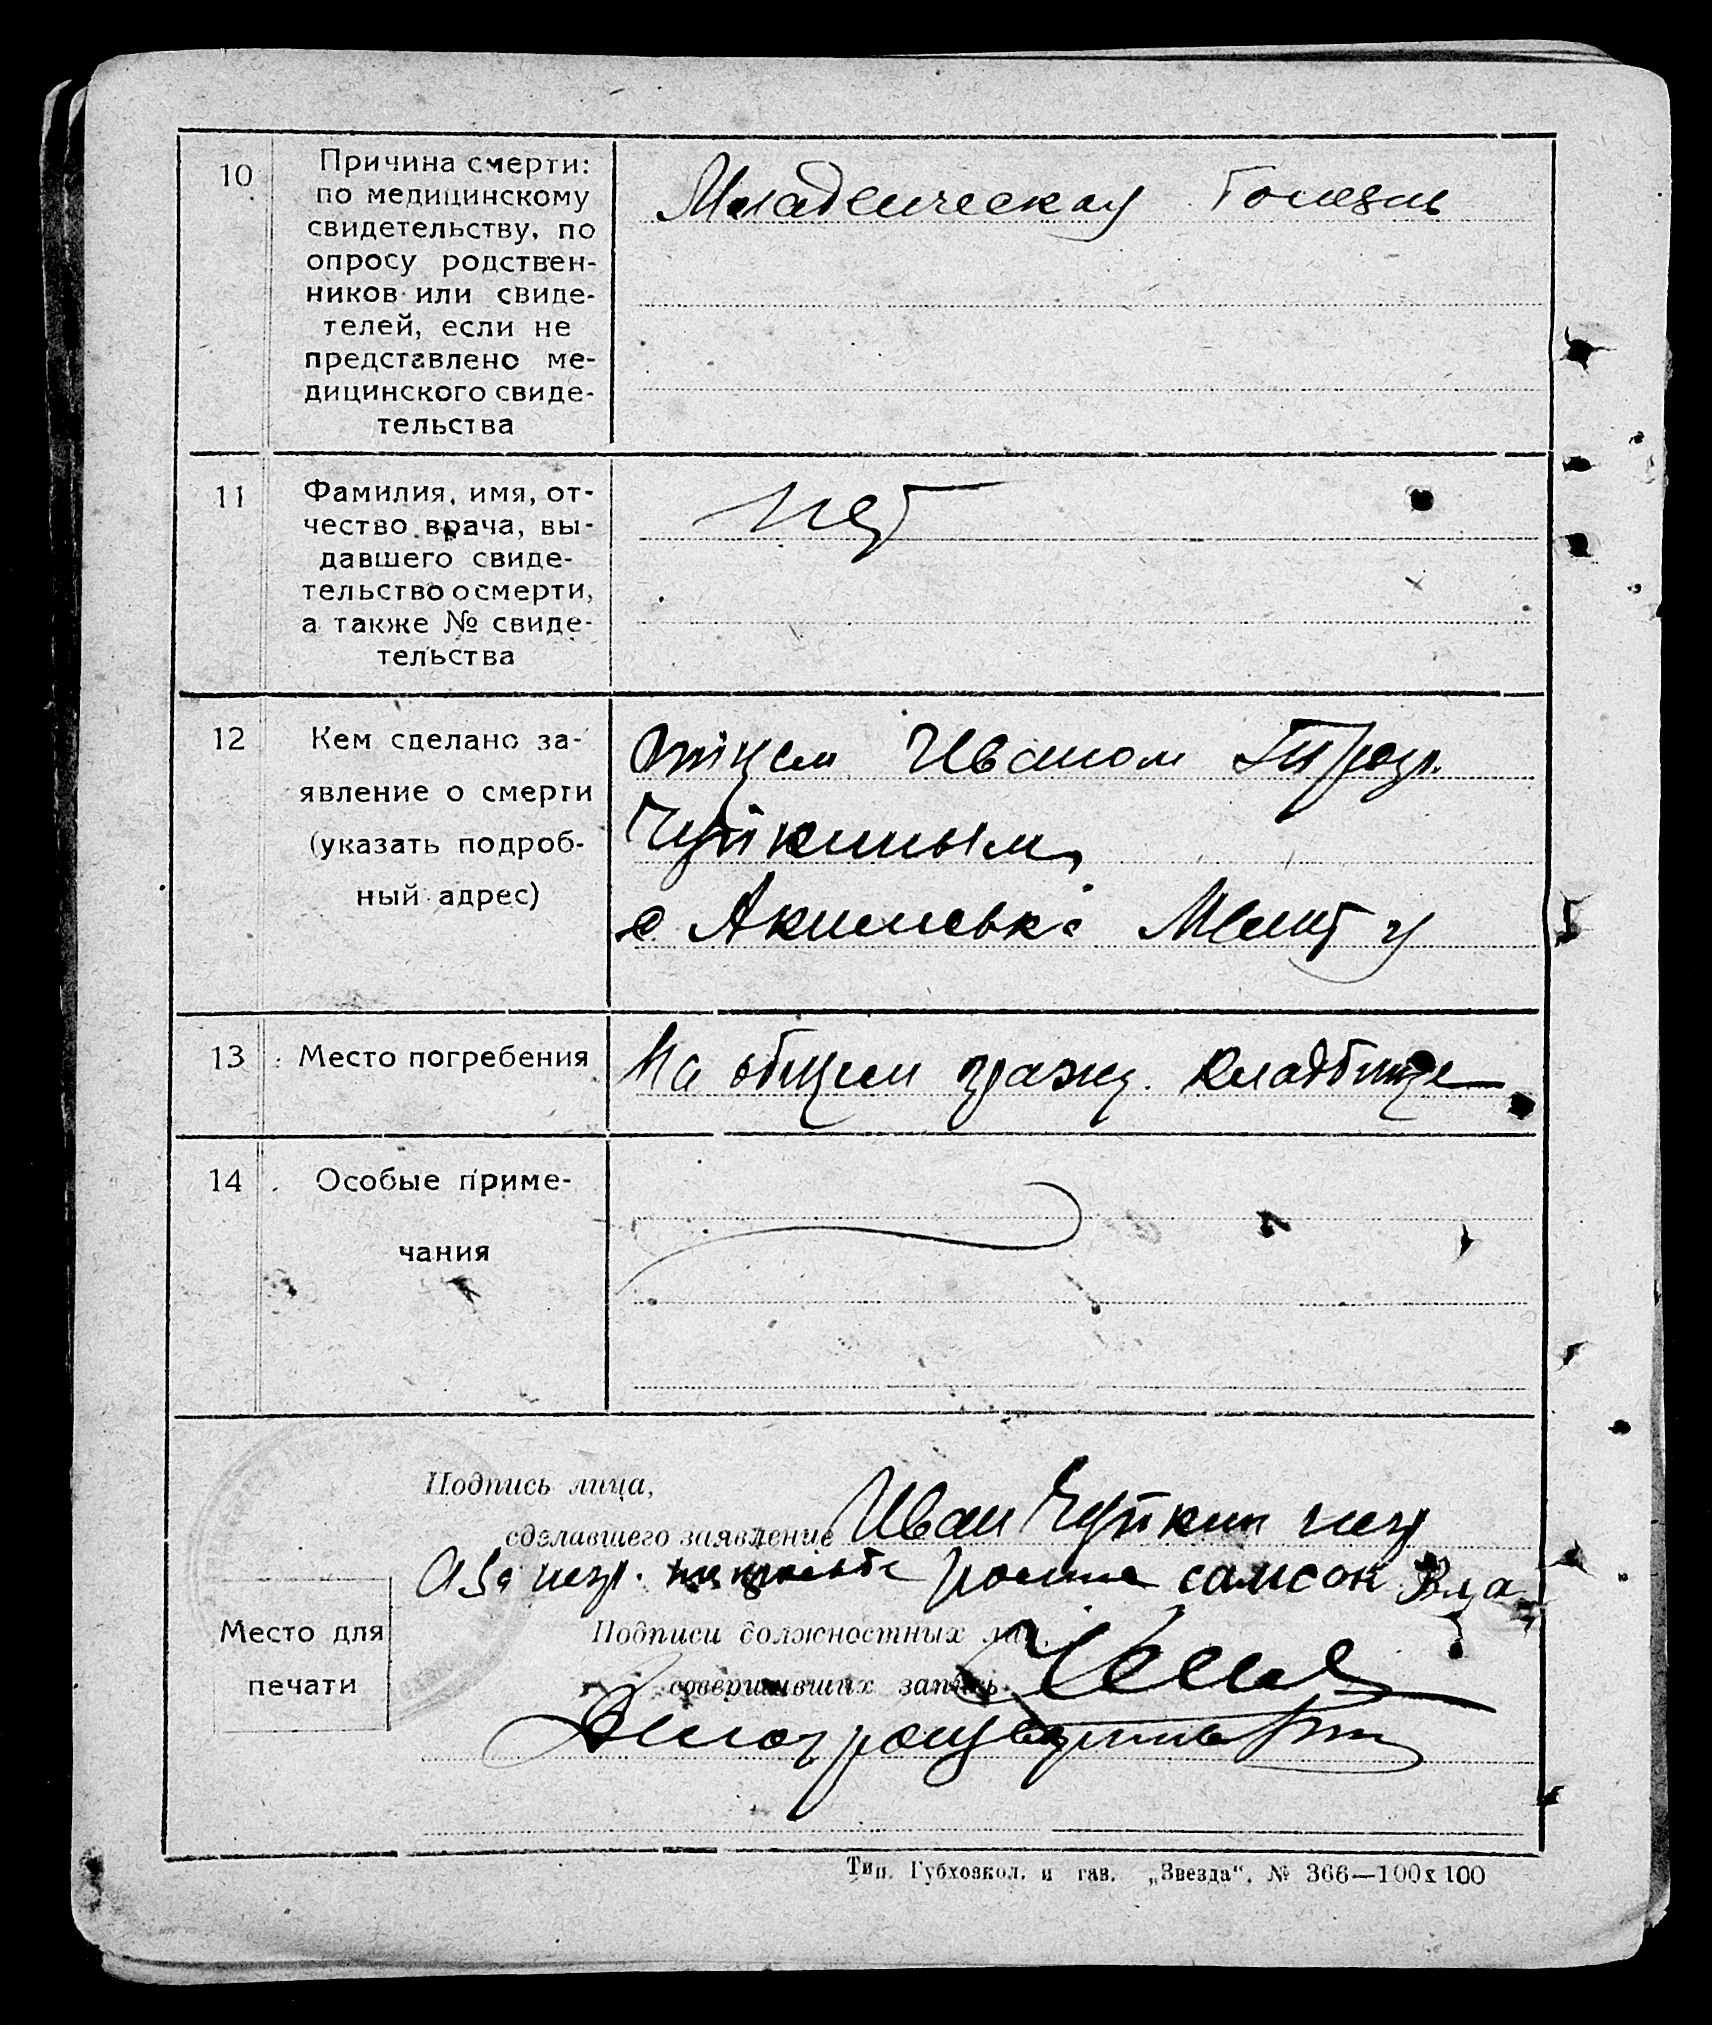 10
Причина смерти:
по медицинскому
свидетельству, по
опросу родствен-
ников или свиде-
телей, если не
представлено ме-
дицинского свиде-
тельства
Младенческая болезнь
11
Фамилия, имя, от-
чество врача, вы-
давшего свиде-
тельство о смерти,
а также № свиде-
тельства
нет
12
Кем сделано за-
явление о смерти
(указать подроб-
ный адрес)
Отцем Иваном
Чуйкиным,
с
13
Место погребения
На общем гражд. кладбище
14
Особые приме-
чания
Подпись лица,
сделавшего заявление Иван Чуйкин негр
негр. самсон
Место для
печати
Подписи должностных лиц,
совершивших запись
Тип. Губхозкол. и газ. „Звезда“, № 366—100х100